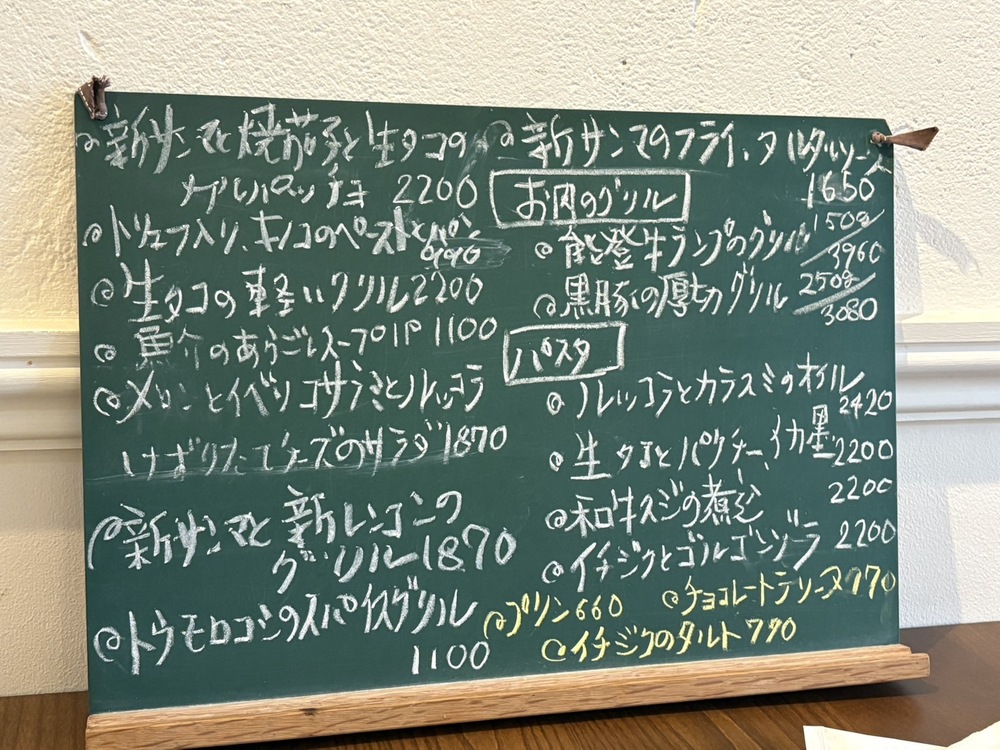 新サンマと焼茄子と生タコの
カルパッチョ 2200
トリュフ入り、キノコのペーストとパン
990
生タコの軽いグリル 2200
魚介のあらごしスープ 1P 1100
メロンとイベリコサラミとルッコラ
けずりたてチーズのサラダ 1870
新サンマと新レンコンの
グリル 1870
トウモロコシのスパイスグリル
1100
新サンマのフライ、タルタルソース
1650
お肉のグリル
能登牛ランプのグリル 150g
3960
黒豚の厚切グリル 250g
3080
パスタ
ルッコラとカラスミのオイル
2420
生タコとパクチー、イカ墨 2200
和牛スジの煮込 2200
イチジクとゴルゴンゾーラ 2200
プリン 660
チョコレートテリーヌ 770
イチジクのタルト 770